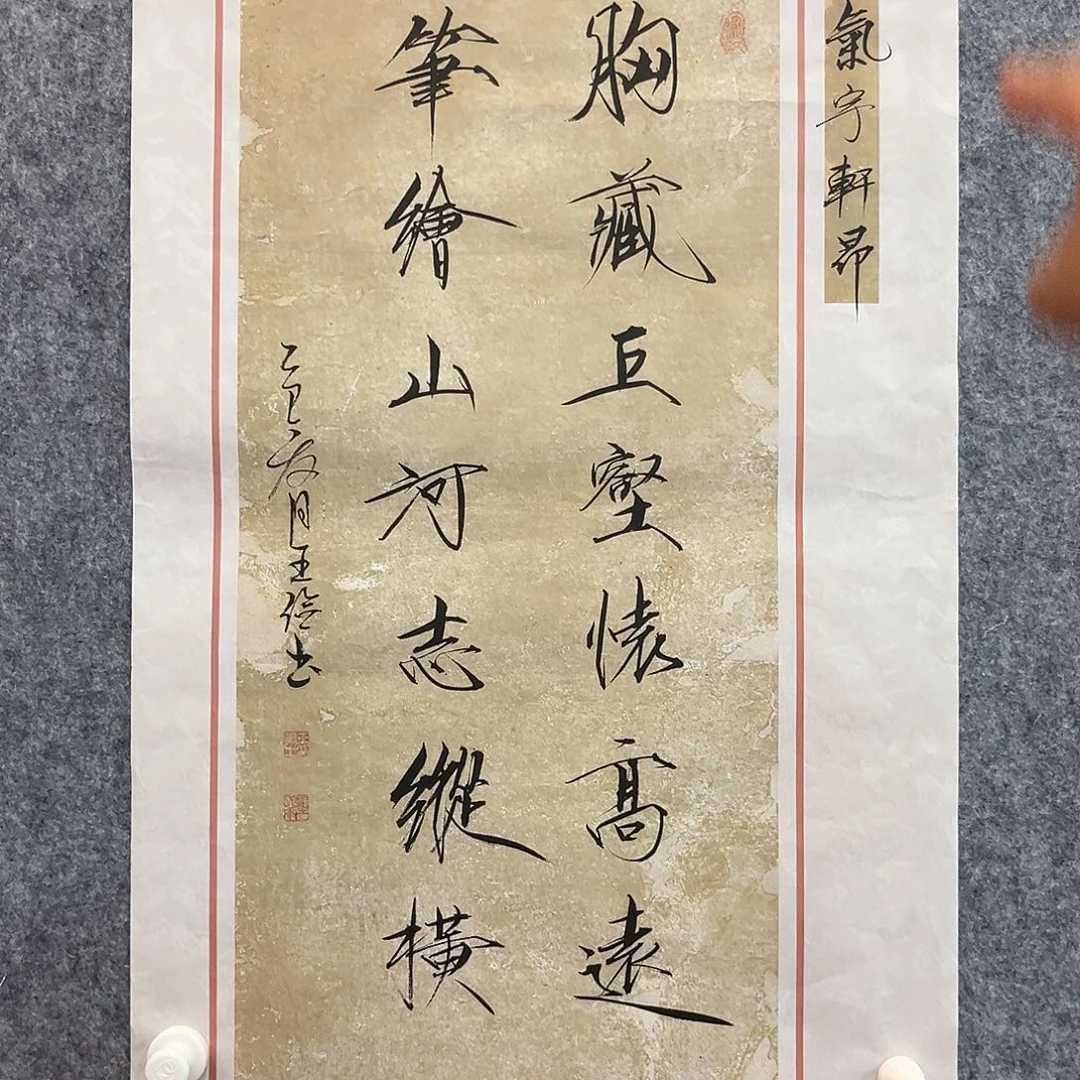 氣宇軒昂
胸藏丘壑懷高遠
筆繪山河志縱橫
月王书